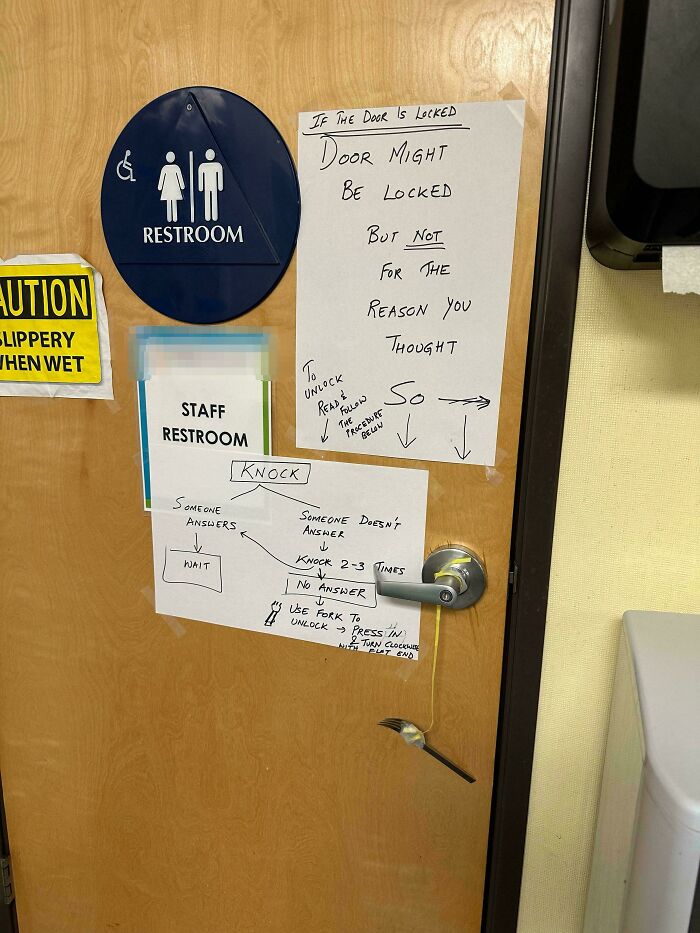 RESTROOM
AUTION
SLIPPERY
WHEN WET
STAFF
RESTROOM
IF THE DOOR IS LOCKED
DOOR MIGHT
BE LOCKED
BUT NOT
FOR THE
REASON YOU
THOUGHT
SO →
TO
UNLOCK
READ &
FOLLOW
THE
PROCEDURE
BELOW
KNOCK
SOMEONE
ANSWERS
WAIT
SOMEONE DOESN'T
ANSWER
KNOCK 2-3 TIMES
NO ANSWER
USE FORK TO
UNLOCK → PRESS IN
& TURN CLOCKWISE
WITH FLAT END